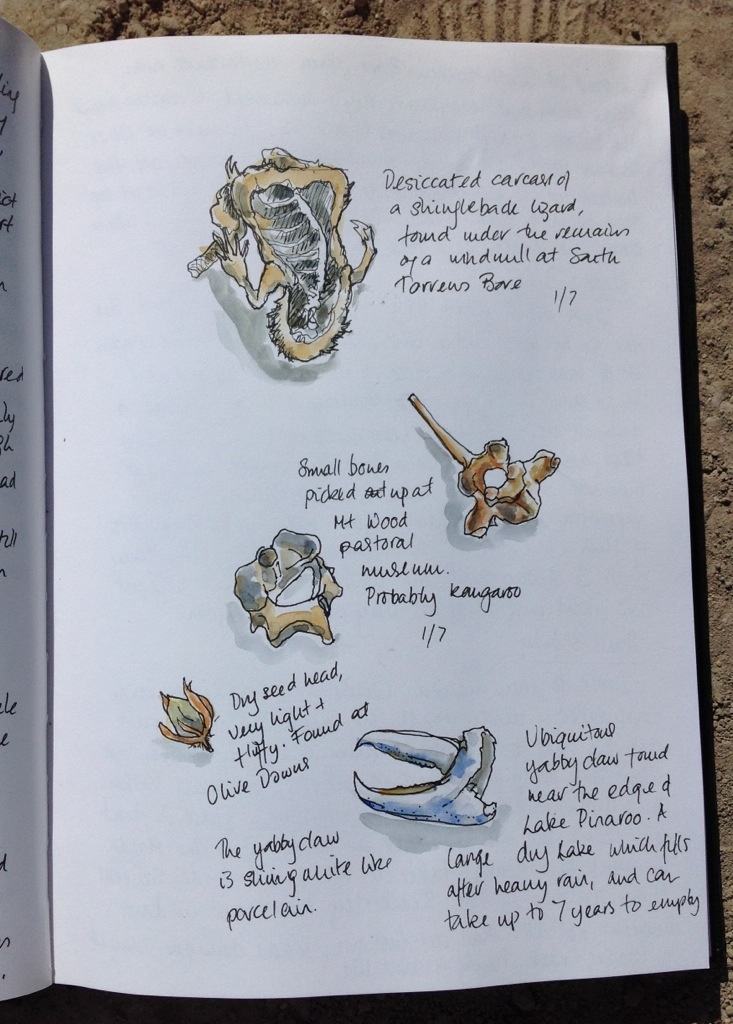 Desiccated carcass of
a shingleback lizard,
found under the remains
of a windmill at South
Torrens Bore
1/7
Small bones
picked up at
Mt Wood
pastoral
museum.
Probably kangaroo
1/7
Dry seed head,
very light +
fluffy. Found at
Olive Downs
Ubiquitous
yabby claw found
near the edge of
Lake Pinaroo. A
large dry lake which fills
after heavy rain, and can
take up to 7 years to empty
The yabby claw
is shining white like
porcelain.